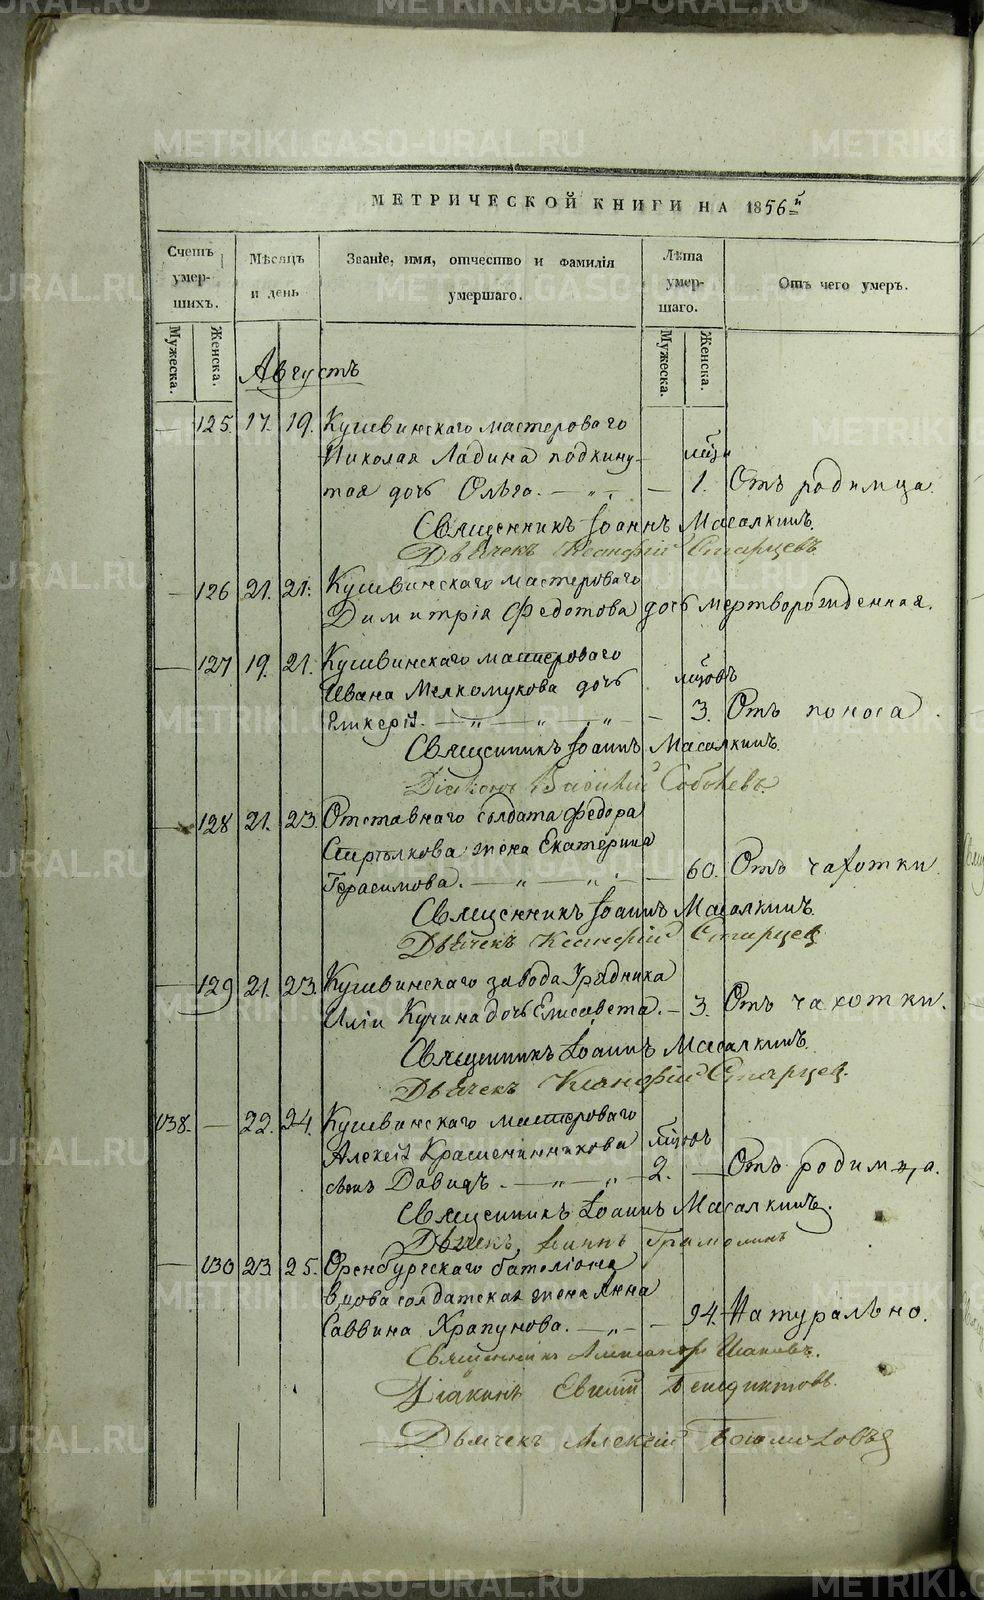 МЕТРИЧЕСКОЙ КНИГИ НА 1856й
Счетъ умер- шихъ.
Мѣсяцъ и день
Званіе, имя, отчество и фамилія умершаго.
Лѣта умер- шаго.
Отъ чего умеръ.
Мужеска. Женска. Мужеска. Женска.
Августъ
— 125. 17. 19. Кушвинскаго мастероваго
Николая Ладина подкину-
тая дочь Ольга. — 1. Отъ родимца.
Священникъ Іоаннъ Масалкинъ.
Дьячекъ Ксанфій Старцевъ
— 126 21. 21. Кушвинскаго мастероваго
Димитрія Федотова дочь мертворожденная.
— 127 19. 21. Кушвинскаго мастероваго
Ивана Мелкомукова дочь мѣсяцовъ
Гликерія. — 3. Отъ поноса.
Священникъ Іоаннъ Масалкинъ.
Діаконъ Василій
— 128 21. 23. Отставнаго солдата Федора
жена Екатерина
Герасимова. — 60. Отъ чахотки.
Священникъ Іоаннъ Масалкинъ.
Дьячекъ Ксанфій Старцевъ
— 129 21. 23. Кушвинскаго завода Урядника
Иліи Кучина дочь Елисавета. — 3. Отъ чахотки.
Священникъ Іоаннъ Масалкинъ.
Дьячекъ Ксанфій Старцевъ.
138. — 22. 24. Кушвинскаго мастероваго
Алексѣя Крашенинникова
сынъ Давидъ. 2. — Отъ родимца.
Священникъ Іоаннъ Масалкинъ.
Дьячекъ Іоаннъ
— 130 23 25. Оренбургскаго баталіона
вдова солдатская жена Анна
Саввина Храпунова. — 94. Натурально.
Священникъ Александръ
Діаконъ Евгеній Бенедиктовъ.
Дьячекъ Алексій Богомоловъ
METRIKI.GASO-URAL.RU